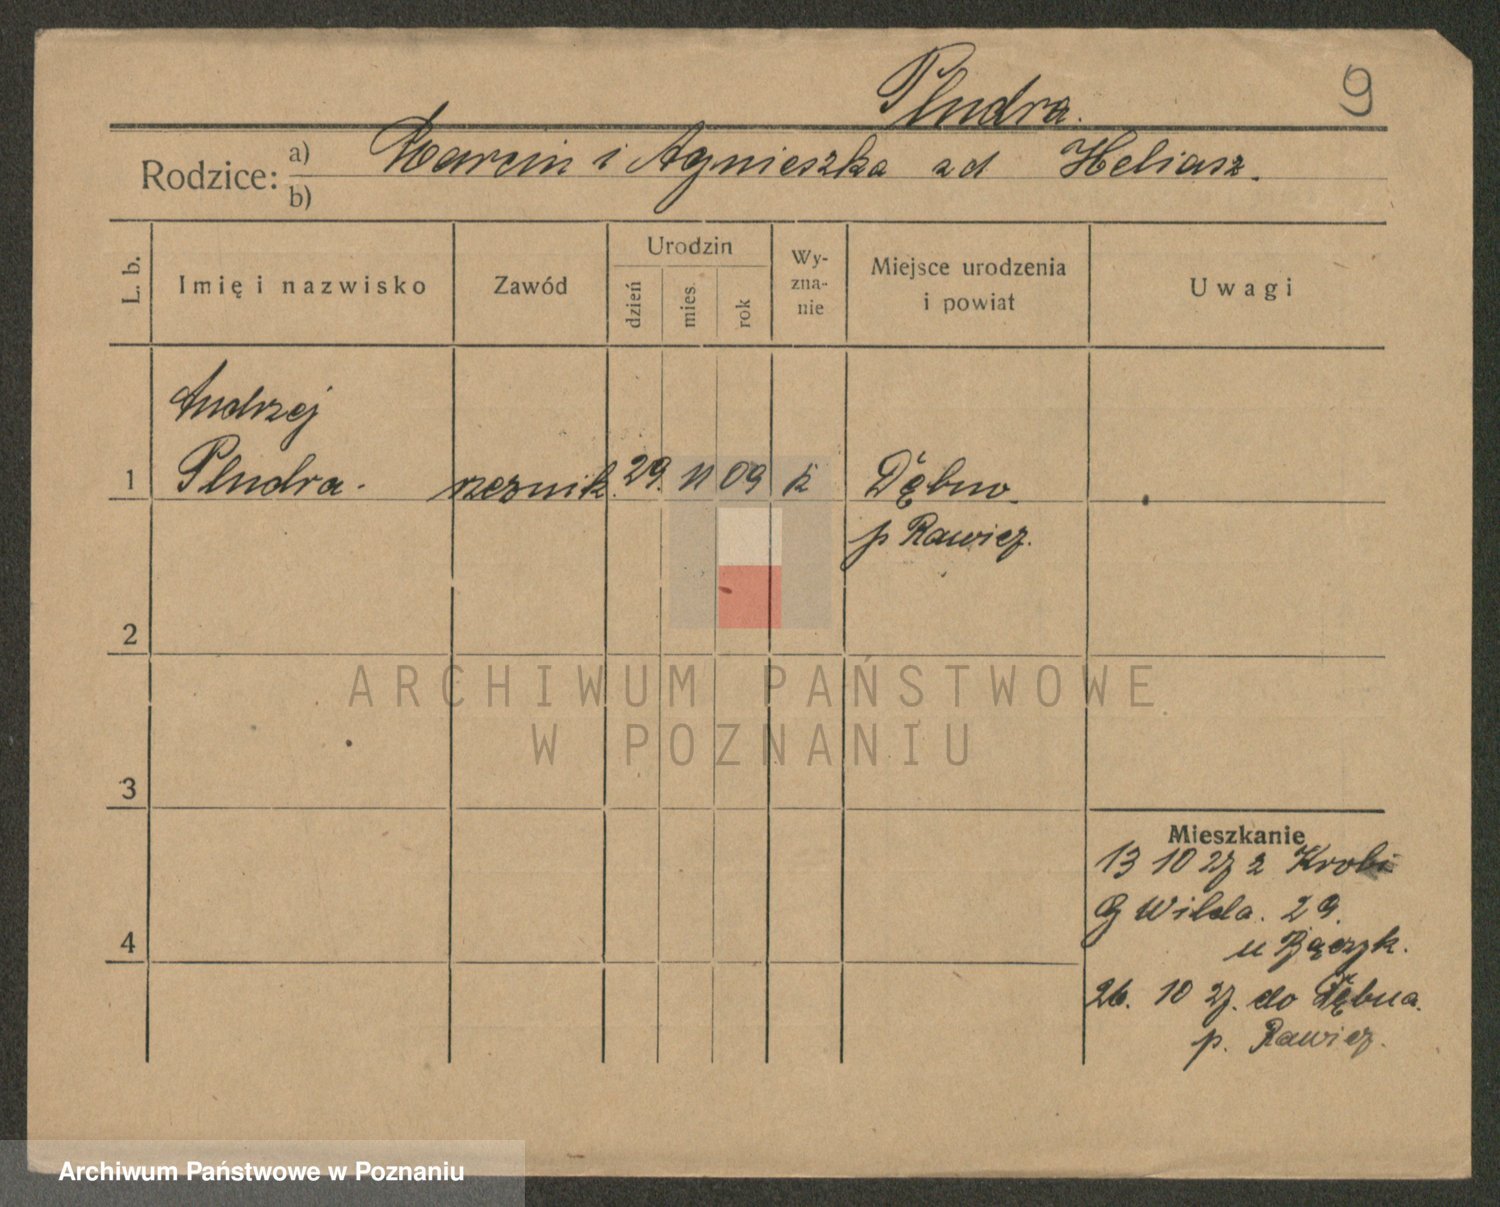 Pludra.
9
Rodzice: a) b) Marcin i Agnieszka zd Heliasz.
L. b.
Imię i nazwisko
Zawód
Urodzin
dzień
mies.
rok
Wy-
zna-
nie
Miejsce urodzenia
i powiat
Uwagi
Andrzej
1 Pludra. rzeznik. 29. 11 09 k Dębno.
p Rawicz.
2
3
4
Mieszkanie
13 10 27 z Krobi
G Wilda. 29.
u Bączyk.
26. 10 27. do Dębna.
p. Rawicz.
ARCHIWUM PAŃSTWOWE
W POZNANIU
Archiwum Państwowe w Poznaniu